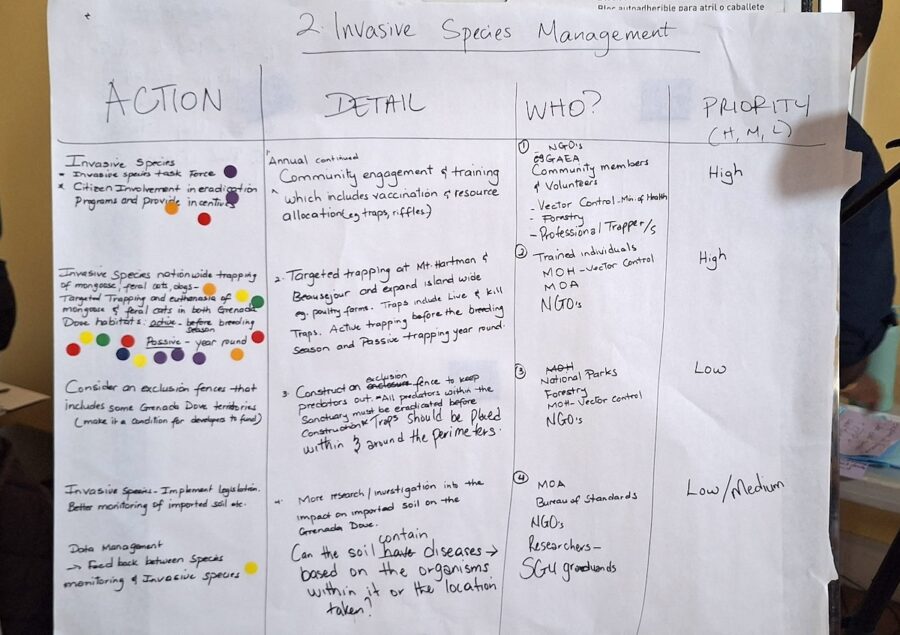 Bloc autoadherible para atril o caballete
2. Invasive Species Management
ACTION
DETAIL
WHO?
PRIORITY
(H, M, L)
Invasive Species
- Invasive species task Force
* Citizen Involvement in eradication
Programs and provide incentives
1. Annual continued
Community engagement & training
which includes vaccination & resource
allocation (eg traps, riffles)
① - NGO's
GAEA
Community members
& Volunteers
- Vector Control - Min. of Health
- Forestry
- Professional Trapper/s
High
Invasive Species nationwide trapping
of mongoose, feral cats, dogs -
Targeted Trapping and euthanasia of
mongoose & feral cats in both Grenada
Dove habitats: active - before breeding
season
Passive - year round
2. Targeted trapping at Mt. Hartman &
Beausejour and expand island wide
eg. poultry farms. Traps include Live & Kill
Traps. Active trapping before the breeding
Season and Passive trapping year round.
② Trained individuals
MOH - Vector Control
MOA
NGO's
High
Consider an exclusion fences that
includes some Grenada Dove territories
(make it a condition for developers to fund)
3. Construct an exclusion enclosure fence to keep
predators out. *All predators within the
Sanctuary must be eradicated before
Construction* Traps should be placed
within & around the perimeters.
③ MOH
National Parks
Forestry
MOH - Vector Control
NGO's
Low
Invasive Species - Implement legislation.
Better monitoring of imported soil etc.
Data Management
→ Feed back between Species
monitoring & Invasive species
4. More research/investigation into the
impact on imported soil on the
Grenada Dove.
contain
Can the soil have diseases →
based on the organisms
within it or the location
taken?
④ MOA
Bureau of Standards
NGO's
Researchers -
SGU
Low/Medium